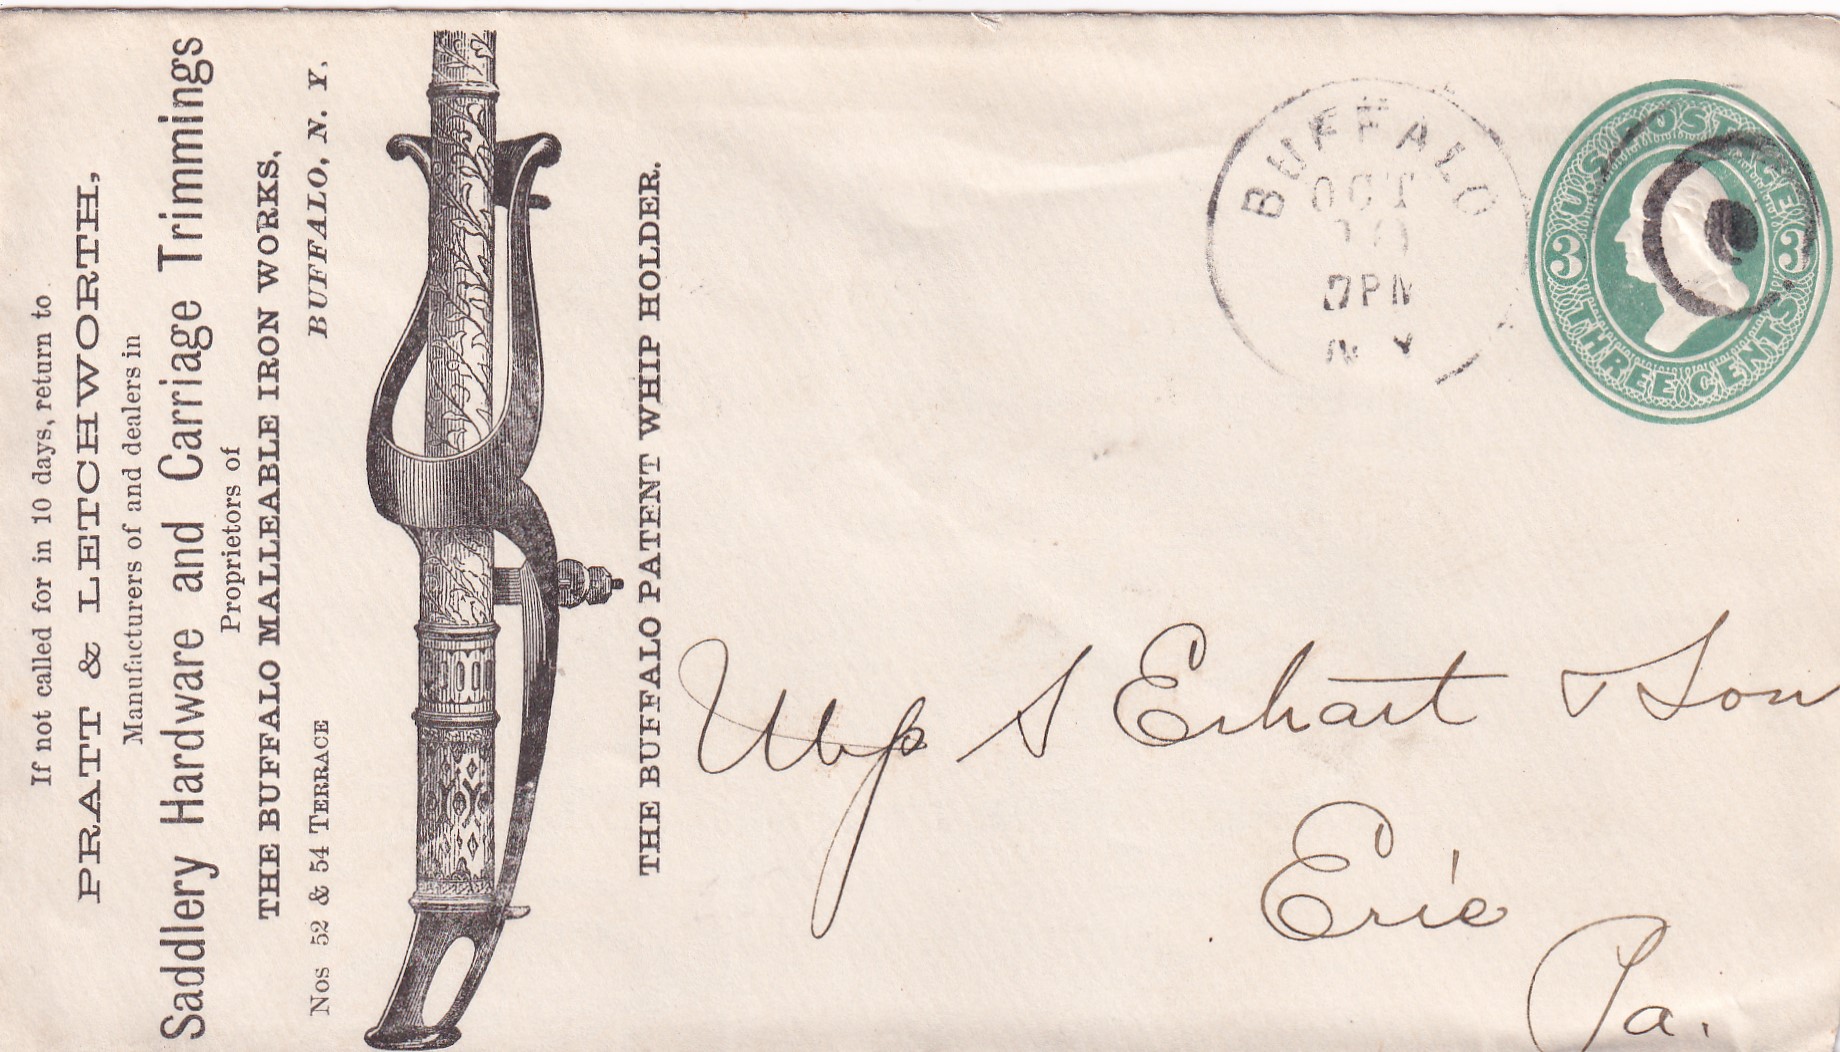 If not called for in 10 days, return to
PRATT & LETCHWORTH,
Manufacturers of and dealers in
Saddlery Hardware and Carriage Trimmings
Proprietors of
THE BUFFALO MALLEABLE IRON WORKS,
Nos 52 & 54 TERRACE BUFFALO, N. Y.
THE BUFFALO PATENT WHIP HOLDER.
BUFFALO
OCT
10
7PM
N Y
U.S. POSTAGE
3 3
THREE CENTS
S Erhart & Son
Erie
Pa.